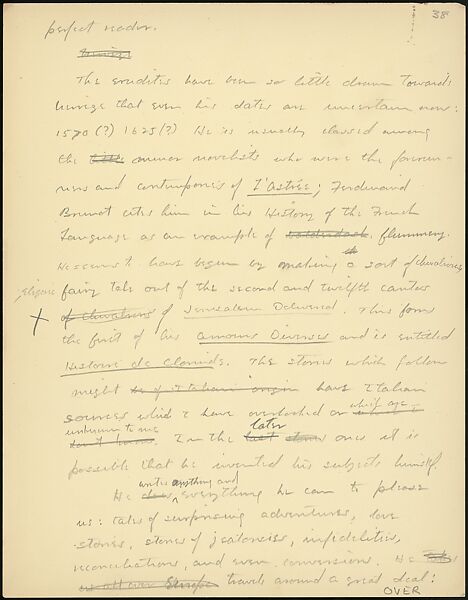 38
perfect reader.
The erudites have been so little drawn towards
Nervèze that even his dates are uncertain now:
1570 (?) 1625 (?) He is usually classed among
the minor novelists who were the forerun-
ners and contemporaries of L'Astrée; Ferdinand
Brunot cites him in his History of the French
Language as an example of flummery.
He seems to have begun by making a sort of chivalrous
fairy tale out of the second and twelfth cantos
of Jerusalem Delivered. This forms
the first of his Amours Diverses and is entitled
Histoire de Clorinde. The stories which follow
might have Italian
sources which I have overlooked or which are
unknown to me. In the later ones it is
possible that he invented his subjects himself.
He writes anything and everything he can to please
us: tales of surprising adventures, love
stories, stories of jealousies, infidelities,
reconciliations, and even conversions. He
travels around a great deal:
OVER